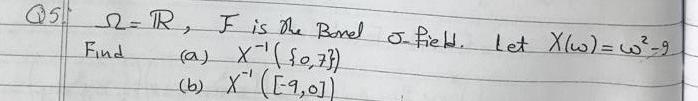 Q5. Ω = ℝ, F is the Borel σ-field. Let X(ω) = ω²-9
Find (a) X⁻¹({0,7})
(b) X⁻¹([-9,0])